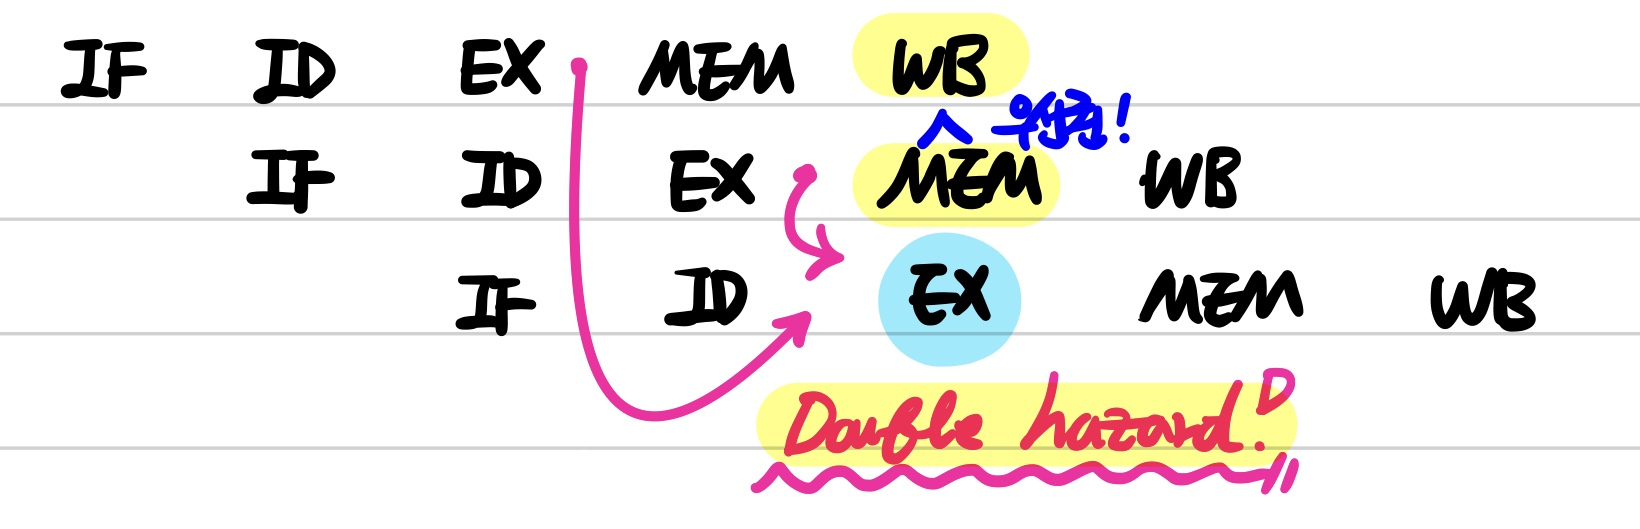 IF ID EX MEM WB
우선권!
IF ID EX MEM WB
IF ID EX MEM WB
Double hazard!